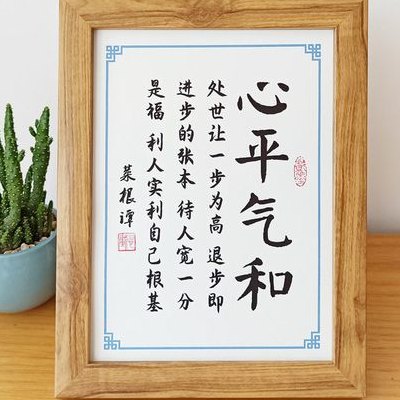 心平气和
处世让一步为高 退步即
进步的张本 待人宽一分
是福 利人实利自己根基
菜根谭